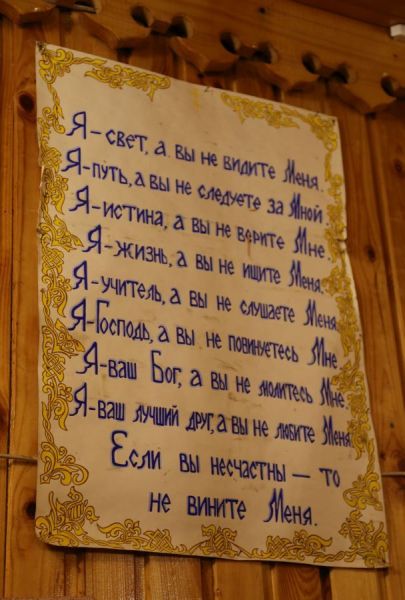 Я-свет, а вы не видите Меня.
Я-путь, а вы не следуете за Мной.
Я-истина, а вы не верите Мне.
Я-жизнь, а вы не ищите Меня.
Я-учитель, а вы не слушаете Меня
Я-Господь, а вы не повинуетесь Мне
Я-ваш Бог, а вы не молитесь Мне.
Я-ваш лучший друг, а вы не любите Меня
Если вы несчастны — то
не вините Меня.